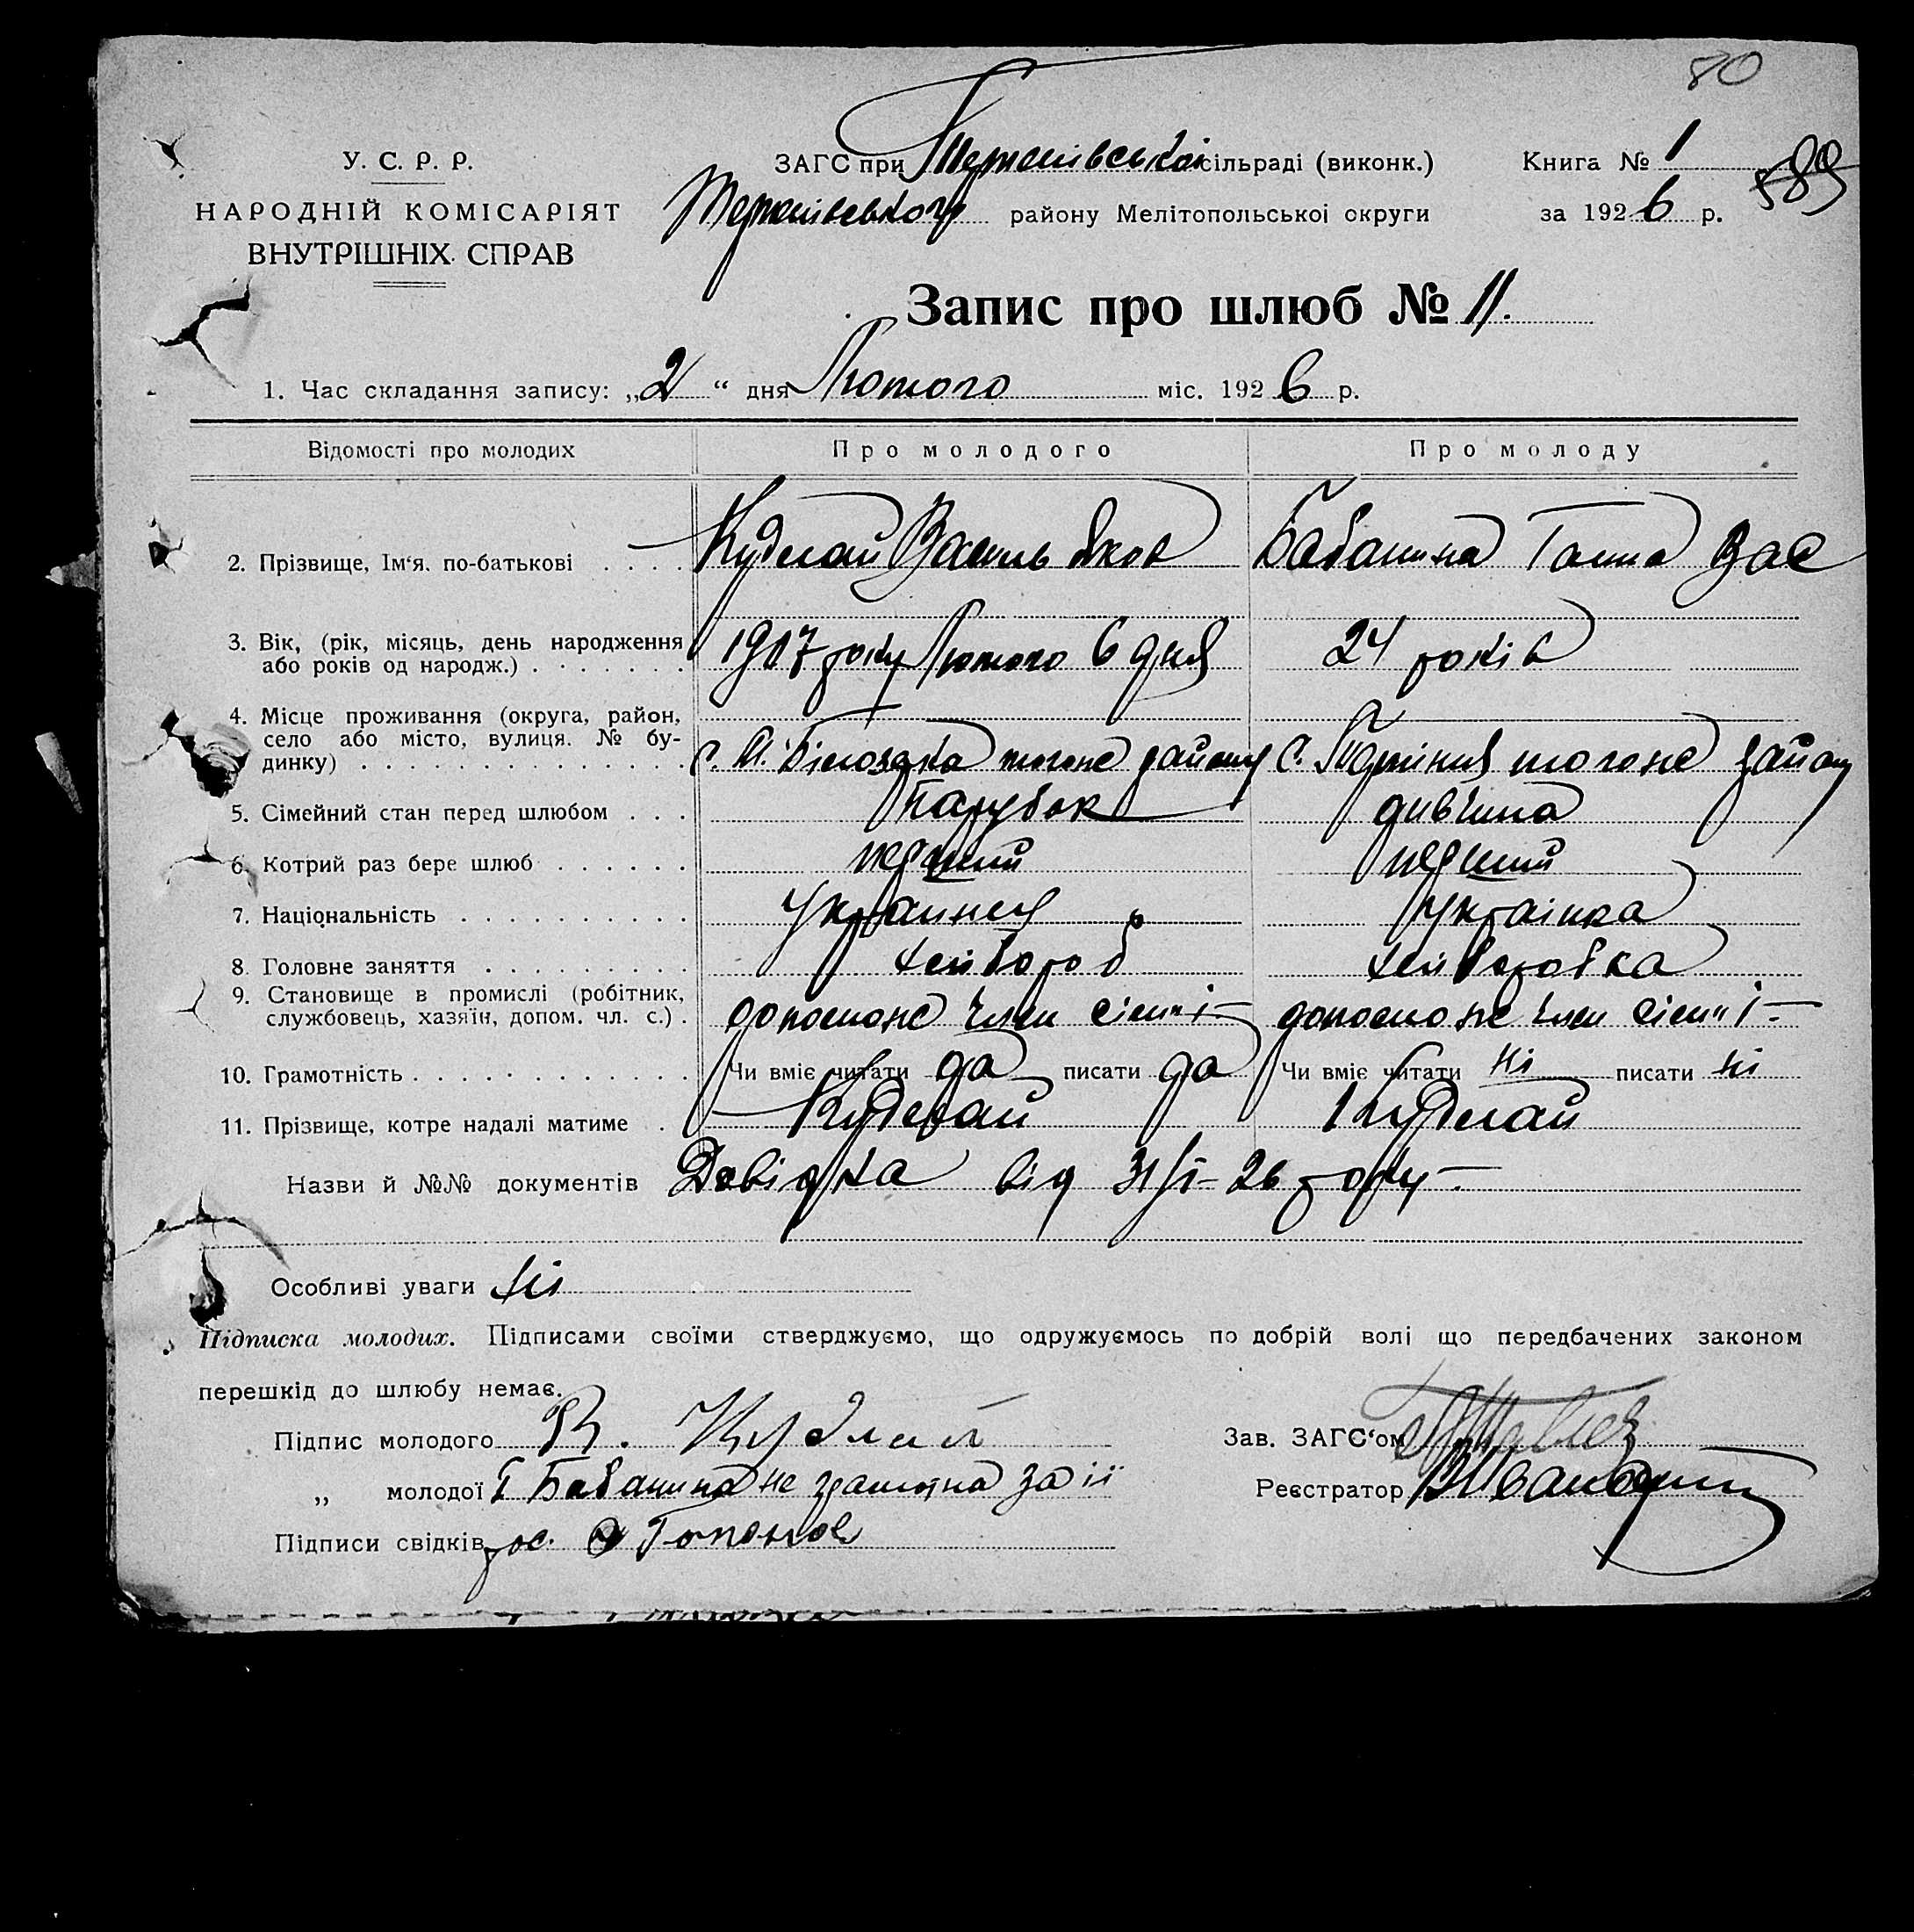 80
У. С. Р. Р.
НАРОДНІЙ КОМІСАРІЯТ
ВНУТРІШНІХ СПРАВ
ЗАГС при Терпінівській сільраді (виконк.)
Терпінівського району Мелітопольської округи
Книга № 1
за 1926 р.
589
Запис про шлюб № 11.
1. Час складання запису: „2“ дня Лютого міс. 1926 р.
Відомості про молодих Про молодого Про молоду
2. Прізвище, Ім'я. по-батькові . . . . Куделай Василь Яков Бабанина Ганна Вас
3. Вік, (рік, місяць, день народження
або років од народж.) . . . . . . . 1907 року Лютого 6 дня 24 років
4. Місце проживання (округа, район,
село або місто, вулиця. № бу-
динку) . . . . . . . . . . . . . . . с. М. Білозірка тогож району с. Терпіння тогож району
5. Сімейний стан перед шлюбом . . . Парубок дивчина
6. Котрий раз бере шлюб . . . . . . перший перший
7. Національність . . . . . . . . . . Украинец українка
8. Головне заняття . . . . . . . . . хлібороб хліборобка
9. Становище в промислі (робітник,
службовець, хазяїн, допом. чл. с.) . допомож член сімї – допомож член сімї –
10. Грамотність . . . . . . . . . . . . Чи вміє читати да писати да Чи вміє читати ні писати ні
11. Прізвище, котре надалі матиме . Куделай Куделай
Назви й №№ документів Довідка від 31/I – 26 року –
Особливі уваги ні
Підписка молодих. Підписами своїми стверджуємо, що одружуємось по добрій волі що передбачених законом
перешкід до шлюбу немає.
Підпис молодого В. Куделай
Зав. ЗАГС'ом
„ молодої Г Бабанина не грамотна за ії
Реєстратор
Підписи свідків рос.